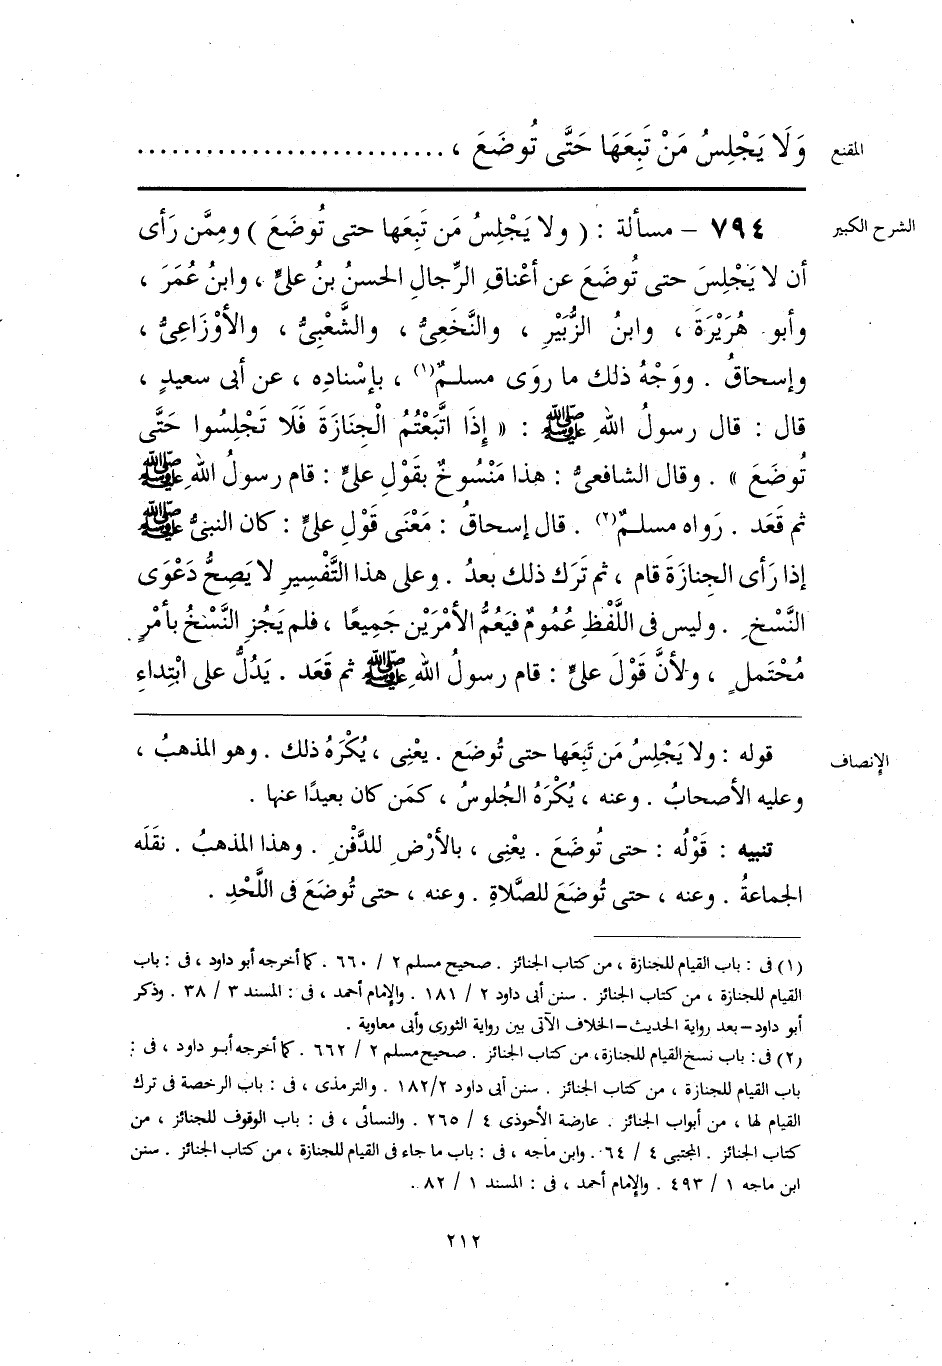 المقنع
وَلَا يَجْلِسُ مَنْ تَبِعَهَا حَتَّى تُوضَعَ ، ...........................
الشرح الكبير
٧٩٤ – مسألة : ( ولا يَجْلِسُ مَن تَبِعَها حتى تُوضَعَ ) ومِمَّن رَأى
أن لا يَجْلِسَ حتى تُوضَعَ عن أعْناقِ الرِّجالِ الحسنُ بنُ علىٍّ ، وابنُ عُمَرَ ،
وأبو هُرَيْرَةَ ، وابنُ الزُّبَيْرِ ، والنَّخَعِىُّ ، والشَّعْبِىُّ ، والأوْزَاعِىُّ ،
وإسحاقُ . ووَجْهُ ذلك ما روَى مسلمٌ(١) ، بإسْنادِه ، عن أبى سعيدٍ ،
قال : قال رسولُ اللهِ ﷺ : « إِذَا اتَّبَعْتُمُ الْجِنَازَةَ فَلَا تَجْلِسُوا حَتَّى
تُوضَعَ » . وقال الشافعىُّ : هذا مَنْسُوخٌ بقَوْلِ علىٍّ : قام رسولُ اللهِ ﷺ
ثم قَعَد . رَواه مسلمٌ(٢) . قال إسحاقُ : مَعْنَى قَوْلِ علىٍّ : كان النبىُّ ﷺ
إذا رَأى الجِنازَةَ قام ، ثم تَرَك ذلك بعدُ . وعلى هذا التَّفْسِيرِ لا يَصِحُّ دَعْوَى
النَّسْخِ . وليس فى اللَّفْظِ عُمُومٌ فيَعُمُّ الأمْرَيْن جَمِيعًا ، فلم يَجُزِ النَّسْخُ بأمْرٍ
مُحْتَملٍ ، ولأنَّ قَوْلَ علىٍّ : قام رسولُ اللهِ ﷺ ثم قَعَد . يَدُلُّ على ابْتِداءِ
الإنصاف
قوله : ولا يَجْلِسُ مَن تَبِعَها حتى تُوضَع . يعْنِى ، يُكْرَهُ ذلك . وهو المذهبُ ،
وعليه الأصحابُ . وعنه ، يُكْرَهُ الجُلوسُ ، كمَن كان بعيدًا عنها .
تنبيه : قَوْلُه : حتى تُوضَعَ . يعْنِى ، بالأرْضِ للدَّفْنِ . وهذا المذهبُ . نقَلَه
الجماعةُ . وعنه ، حتى تُوضَعَ للصَّلاةِ . وعنه ، حتى تُوضَعَ فى اللَّحْدِ .
(١) فى : باب القيام للجنازة ، من كتاب الجنائز . صحيح مسلم ٢ / ٦٦٠ . كما أخرجه أبو داود ، فى : باب
القيام للجنازة ، من كتاب الجنائز . سنن أبى داود ٢ / ١٨١ . والإمام أحمد ، فى : المسند ٣ / ٣٨ . وذكر
أبو داود – بعد رواية الحديث – الخلاف الآتى بين رواية الثورى وأبى معاوية .
(٢) فى : باب نسخ القيام للجنازة، من كتاب الجنائز . صحيح مسلم ٢ / ٦٦٢ . كما أخرجه أبو داود ، فى :
باب القيام للجنازة ، من كتاب الجنائز . سنن أبى داود ١٨٢/٢ . والترمذى ، فى : باب الرخصة فى ترك
القيام لها ، من أبواب الجنائز . عارضة الأحوذى ٤ / ٢٦٥ . والنسائى ، فى : باب الوقوف للجنائز ، من
كتاب الجنائز . المجتبى ٤ / ٦٤ . وابن ماجه ، فى : باب ما جاء فى القيام للجنازة ، من كتاب الجنائز . سنن
ابن ماجه ١ / ٤٩٣ . والإمام أحمد ، فى : المسند ١ / ٨٢ .
٢١٢